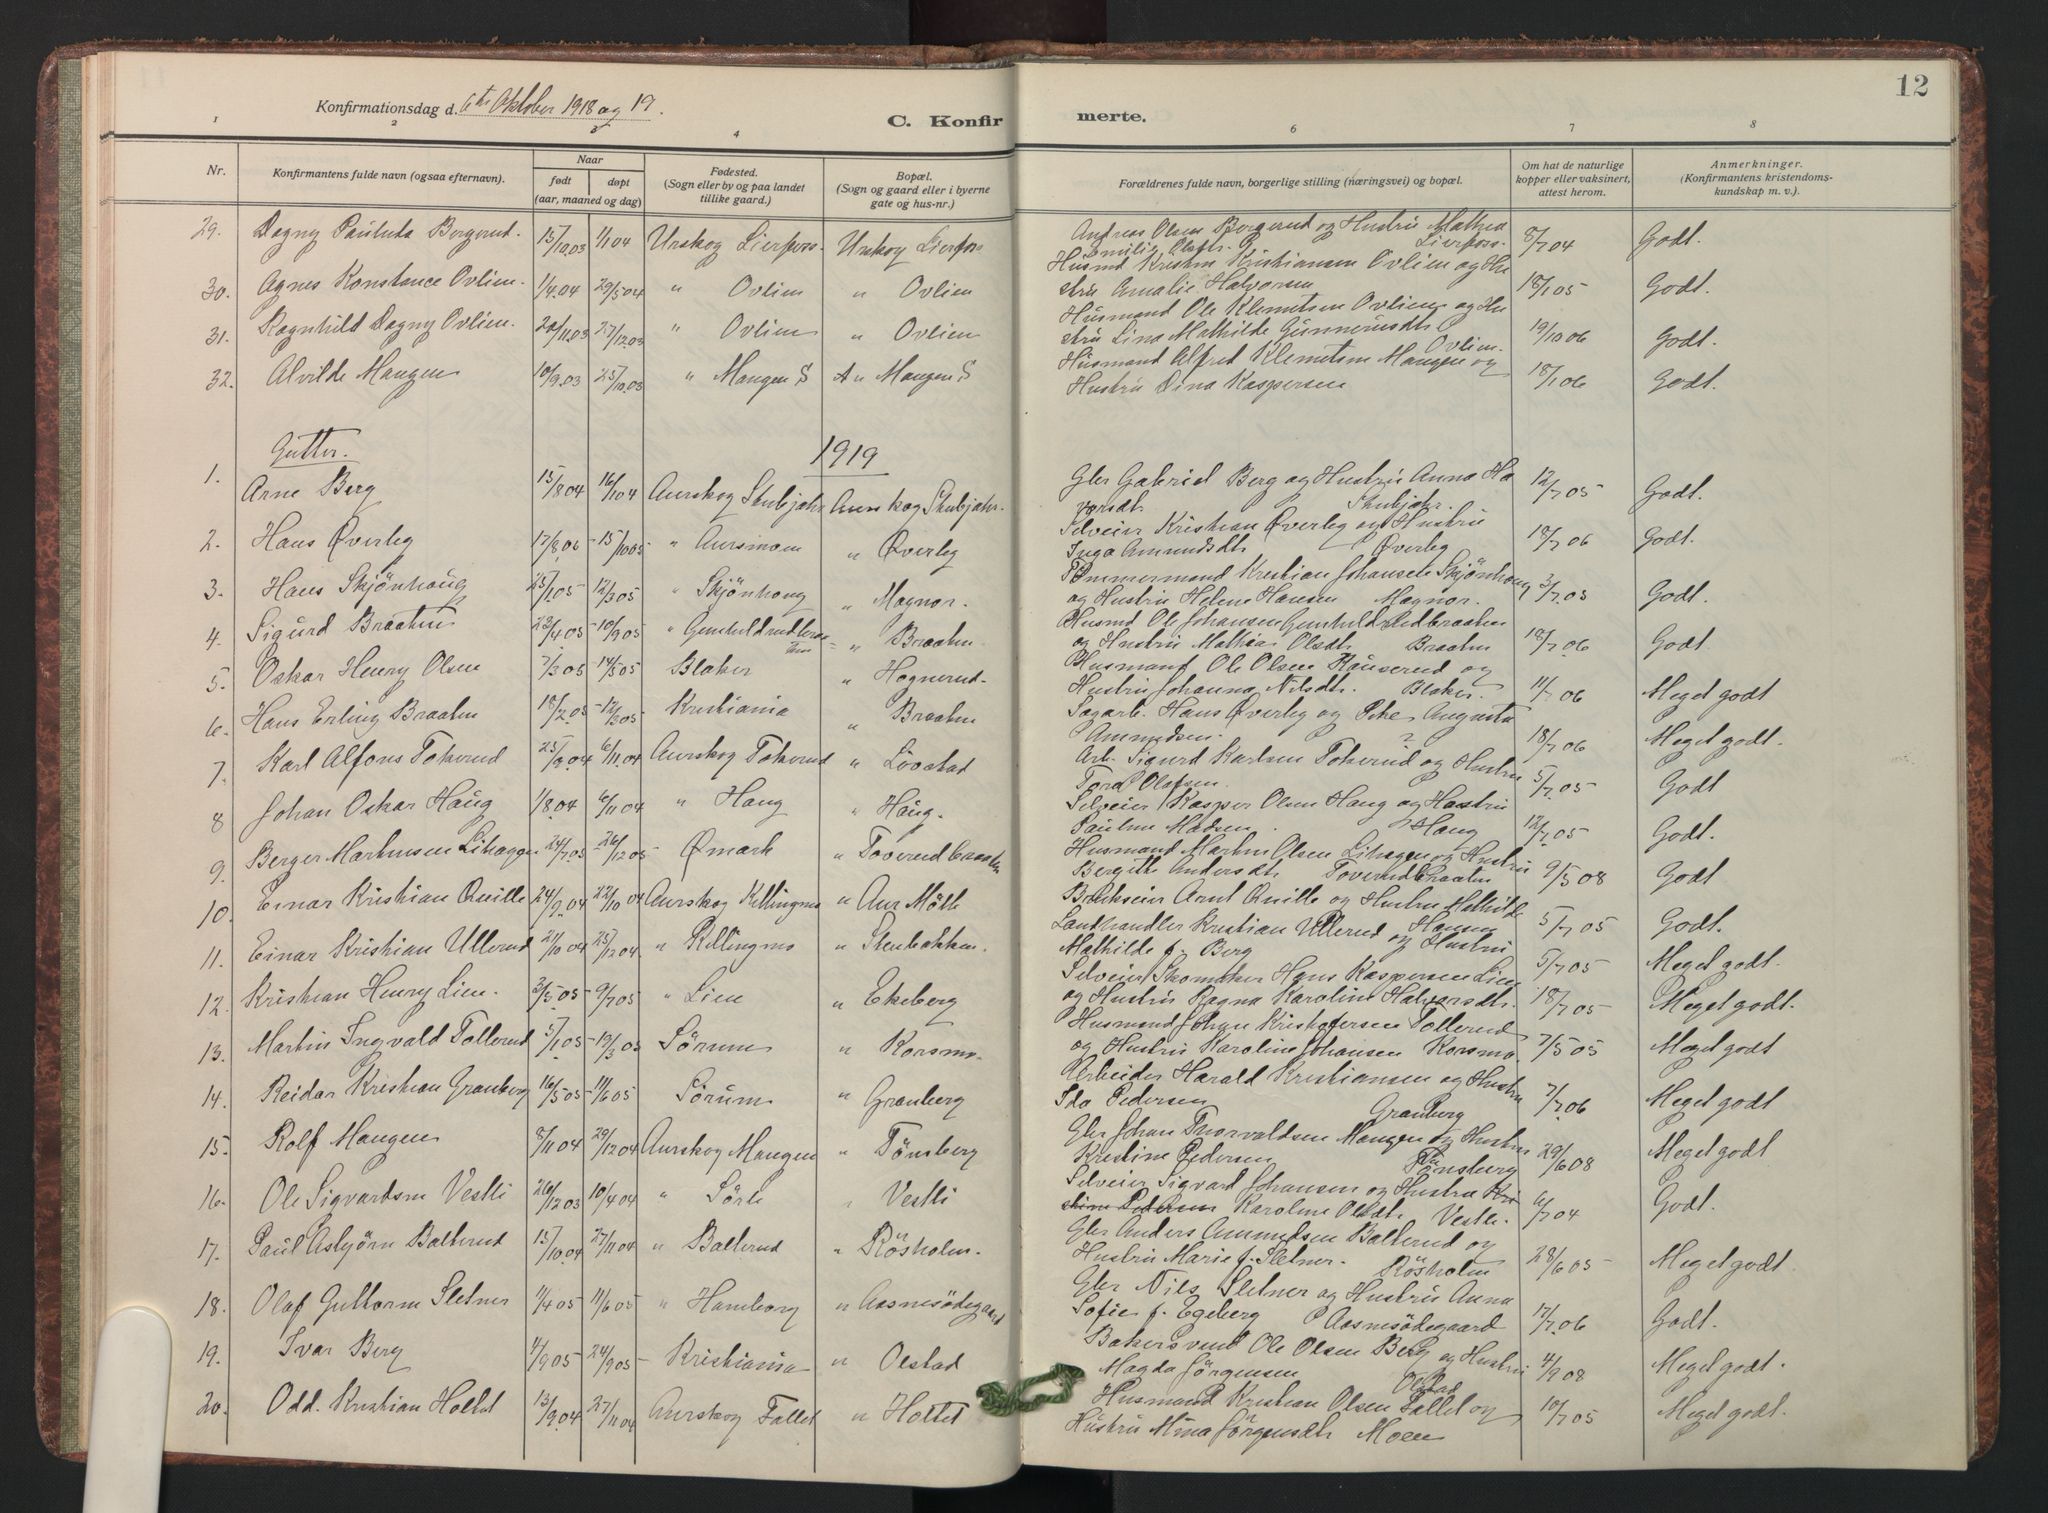 12
Konfirmationsdag d. 6te Oktober 1918 og 19.
C. Konfirmerte.
1 2 3 4 5 6 7 8
Nr. Konfirmantens fulde navn (ogsaa efternavn). Naar født døpt (aar, maaned og dag) Fødested. (Sogn eller by og paa landet tillike gaard.) Bopæl. (Sogn og gaard eller i byerne gate og hus-nr.) Forældrenes fulde navn, borgerlige stilling (næringsvei) og bopæl. Om hat de naturlige kopper eller vaksinert, attest herom. Anmerkninger. (Konfirmantens kristendomskundskap m. v.).
29. Dagny Paulida Bergerud 15/10.03 1/1 04 Urskog Lierfoss Urskog Lierfos Andreas Olsen Bergerud og Hustru Mathea
Emilie Olsdtr. Lierfoss. 8/7 04 Godt.
30. Agnes Konstance Ovlien. 1/4.04 29/5 04 " Ovlien " Ovlien Husmd Kristen Kristiansen Ovlien og Hu
stru Amalie Halvorsen 18/1 05 Godt.
31. Ragnhild Dagny Ovlien. 20/11.03 27/12.03 " Ovlien " Ovlien Husmand Ole Klemetsen Ovlien og Hu
stru Lina Mathilde Gunnerusdtr Ovlien. 19/10 06 Godt.
32. Alvilde Mangen 10/9.03 25/10.03 " Mangen S A " Mangen S Husmand Alfred Klemetsen Mangen og
Hustru Dina Kaspersen 18/1 06 Godt.
Gutter. 1919
1. Arne Berg 15/8 04 16/1 04 Aurskog Stubjahr Aurskog Stubjahr. Gbr Gabriel Berg og Hustru Anna Ha
vorsdt. Stubjahr. 12/7 05 Godt.
2. Hans Øverby 17/8.06 15/10 05 " Aursmoen " Øverby Selveier Kristian Øverby og Hustru
Inga Amundsdt. Øverby 18/7 06 Godt.
3. Hans Skjönhaug 25/1.05 12/3 05 " Skjönhaug " Magnor. Tömmermand Kristian Johansen Skjönhaug
og Hustru Helene Hansen Magnor. 3/7.05 Godt.
4. Sigurd Braaten 23/4.05 10/9 05 " Gunhildrudbraaten " Braaten. Husmd Ole Johansen Gunhildrudbraaten
og Hustru Mathea Olsdt. Braaten 18/7.06 Godt.
5. Oskar Henry Olsen 7/3 05 14/5 05 Blaker " Hognerud. Husmand Ole Olsen Rauserud og
Hustru Johanna Nilsdt. Blaker. 11/7 06 Meget godt
6. Hans Erling Braaten 18/2.05 12/3 05 Kristiania " Braaten Sagarb. Hans Øverby og Pike Augusta
Amundsen. ? 18/7 06 Meget godt.
7. Karl Alfons Tokerud 25/9.04 6/11.04 Aurskog Tokerud " Lövstad Arb. Sigurd Karlsen Tokerud og Hustru
Tora Olafsen. 5/7.05 Godt
8 Johan Oskar Haug 1/8.04 6/11 04 " Haug " Haug. Selveier Kasper Olsen Haug og Hustru
Pauline Madsen. Haug 12/7.05 Godt.
9. Berger Martinsen Lihagen 24/7.05 26/12.05 Ømark " Toverudbraaten Husmand Martin Olsen Lihagen og Hustru
Bergitte Andersdt. Toverudbraaten 9/5 08 Godt
10. Einar Kristian Qville 24/9.04 22/10 04 Aurskog Killingmo " Aur Mölle Brukseier Arnt Qville og Hustru Mathilde
Hansen 5/7 05 Godt.
11. Einar Kristian Ullerud 21/10 04 25/12 04 " Killingmo " Stenbakken. Landhandler Kristian Ullerud og Hustru
Mathilde f. Berg 5/7 05 Meget godt.
12. Kristian Henry Lien. 3/5.05 9/7 05 " Lien " Ekeberg Selveier Skomaker Hans Kaspersen Lien
og Hustru Ragna Karoline Halvorsdtr. 18/7 05 Meget godt.
13. Martin Ingvald Tollerud 5/1.05 19/3 05 Sörum " Korsmo. Husmand Johan Kristofersen Tollerud
og Hustru Karoline Johansen Korsmo. 7/5 05 Meget godt
14. Reidar Kristian Granberg 16/5 05 11/6 05 Sörum " Granberg Arbeider Harald Kristiansen og Hustru
Ida Pedersen Granberg 7/7.06 Meget godt
15. Rolf Mangen 8/11 04 29/12 04 Aurskog Mangen " Tönsberg Gbr Johan Thorvaldsen Mangen og Hustru
Kristine Pedersen Tönsberg 29/6 08 Meget godt
16. Ole Sigvartsen Vestli 26/12 03 10/4 04 " Sörli " Vestli Selveier Sigvard Johansen og Hustru Kri
stine Pedersen Karoline Olsdt. Vestli. 6/7 04 Godt.
17. Paul Asbjörn Ballerud 15/10.04 27/11 04 " Ballerud " Rösholm. Gbr Anders Amundsen Ballerud og
Hustru Marie f. Sletner. Rösholm 28/6 05 Meget godt.
18. Olaf Guttorm Sletner 11/4 05 11/6 05 " Hamborg " Aasmesödegaard Gbr Nils Sletner og Hustru Anna
Sofie f. Egeberg Aasmesödegaard 17/7.06 Godt.
19. Ivar Berg 4/9 05 24/9 05 Kristiania " Olstad Bakersvend Ole Olsen Berg og Hustru
Magda Jörgensen Olstad 4/9 08 Meget godt.
20. Odd. Kristian Holtet 13/9.04 27/11 04 Aurskog Fallet " Holtet Husmand Kristian Olsen Fallet og
Hustru Mina Jörgensdt. Moen 10/7 05 Meget godt.